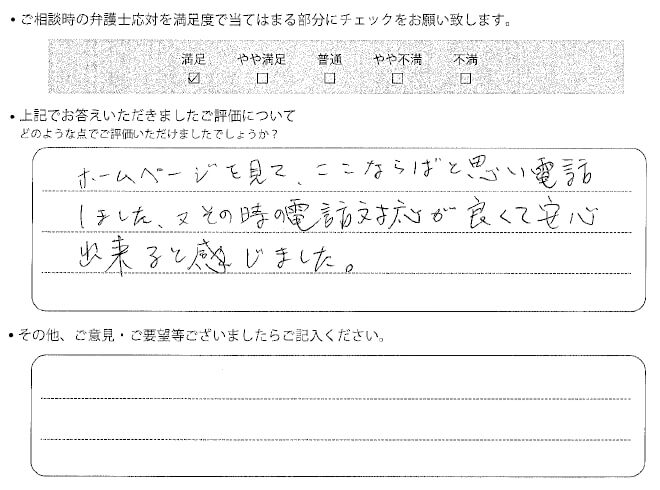 • ご相談時の弁護士応対を満足度で当てはまる部分にチェックをお願い致します。
満足 やや満足 普通 やや不満 不満
☑ ☐ ☐ ☐ ☐
• 上記でお答えいただきましたご評価について
どのような点でご評価いただけましたでしょうか？
ホームページを見て、ここならばと思い電話
しました、又その時の電話対応が良くて安心
出来ると感じました。
• その他、ご意見・ご要望等ございましたらご記入ください。